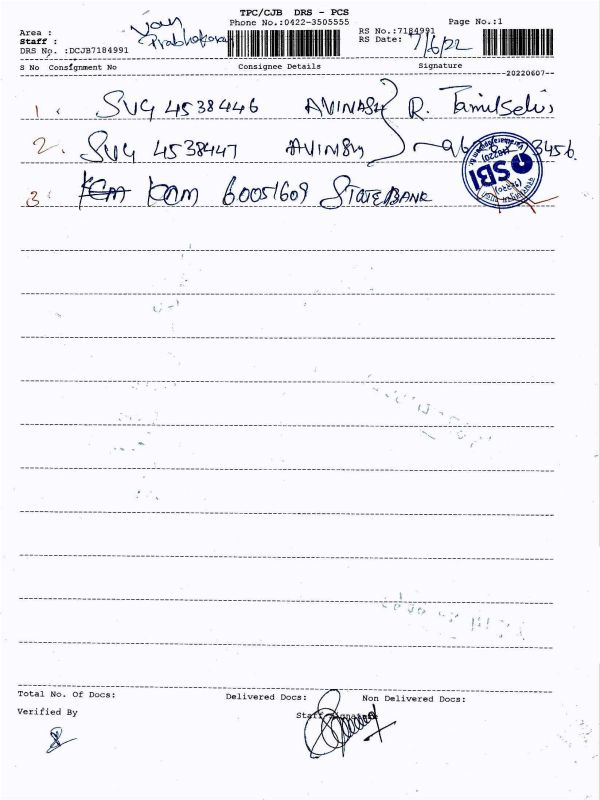 TPC/CJB DRS - PCS
Phone No.:0422-3505555 Page No.:1
Area : Van
Staff : Prabhakaran
RS No.:7184991
DRS No. :DCJB7184991
RS Date: 7/6/22
S No Consignment No Consignee Details Signature
20220607
1. SVG 4538446 AVINASH R. Tamilselvi
2. SVG 4538447 AVINASH 3456
3. KCM 60051609 STATE BANK
SBI
Total No. Of Docs: Delivered Docs: Non Delivered Docs:
Verified By Staff Signature